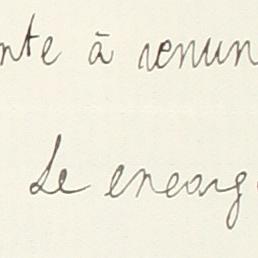 nte à renun
Le encarg